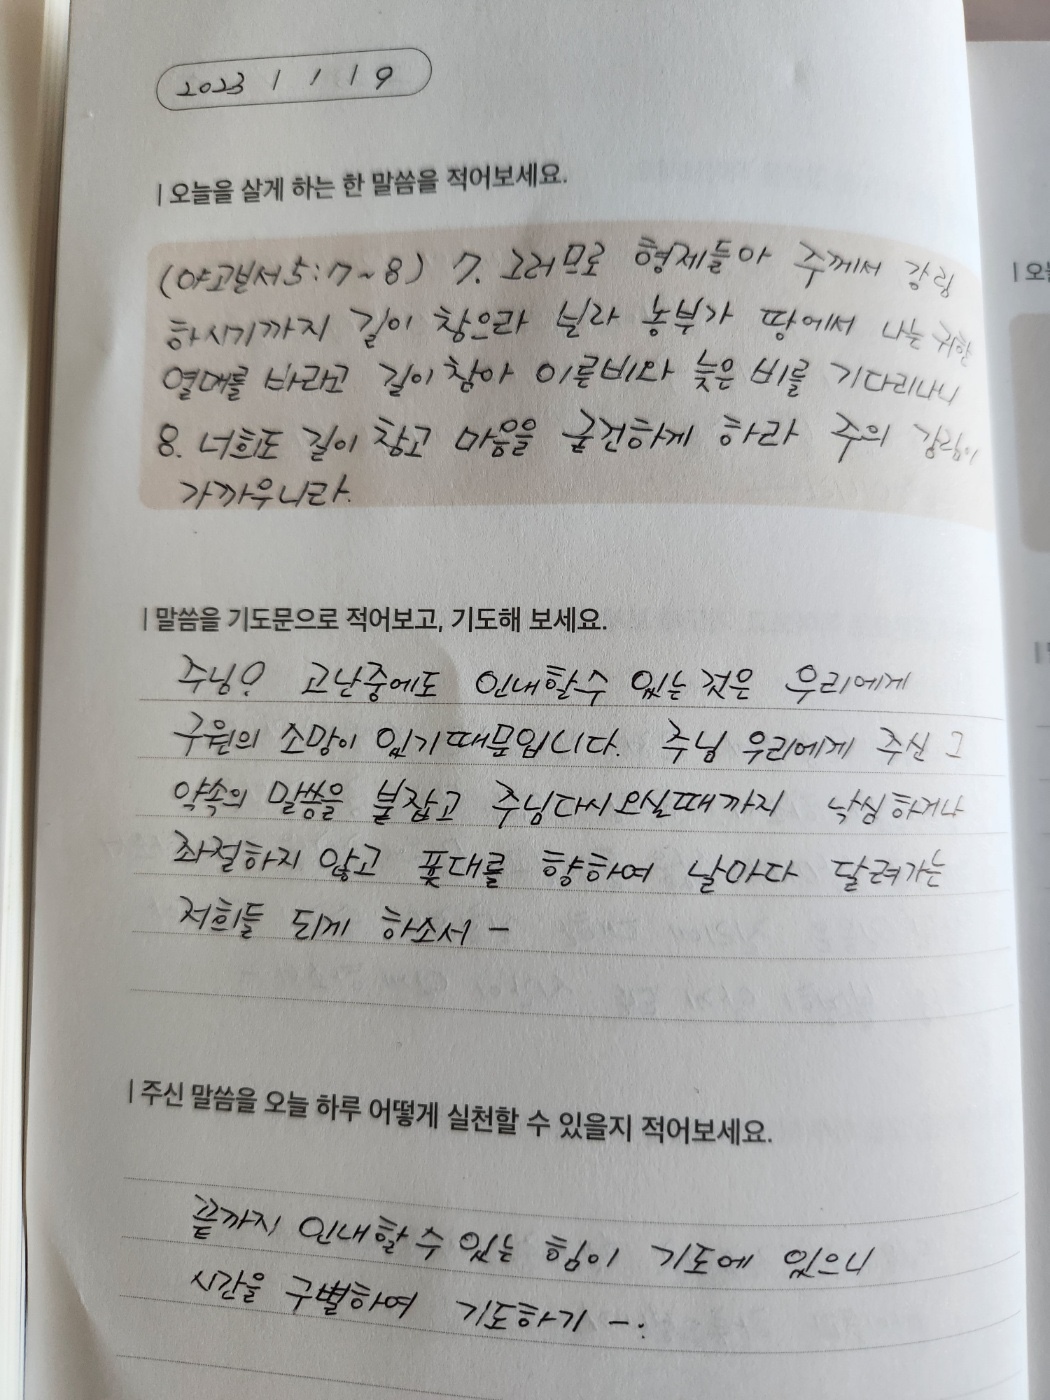 2023 / 1 / 19
| 오늘을 살게 하는 한 말씀을 적어보세요.
(야고보서5:7~8) 7. 그러므로 형제들아 주께서 강림
하시기까지 길이 참으라 보라 농부가 땅에서 나는 귀한
열매를 바라고 길이 참아 이른비와 늦은 비를 기다리나니
8. 너희도 길이 참고 마음을 굳건하게 하라 주의 강림이
가까우니라.
| 말씀을 기도문으로 적어보고, 기도해 보세요.
주님? 고난중에도 인내할수 있는 것은 우리에게
구원의 소망이 있기때문입니다. 주님 우리에게 주신 그
약속의 말씀을 붙잡고 주님다시오실때까지 낙심하거나
좌절하지 않고 푯대를 향하여 날마다 달려가는
저희들 되게 하소서 -
| 주신 말씀을 오늘 하루 어떻게 실천할 수 있을지 적어보세요.
끝까지 인내할 수 있는 힘이 기도에 있으니
시간을 구별하여 기도하기 -.